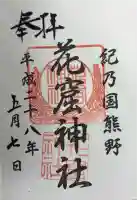 紀乃国熊野
奉拝
花窟神社
平成二十八年
五月七日